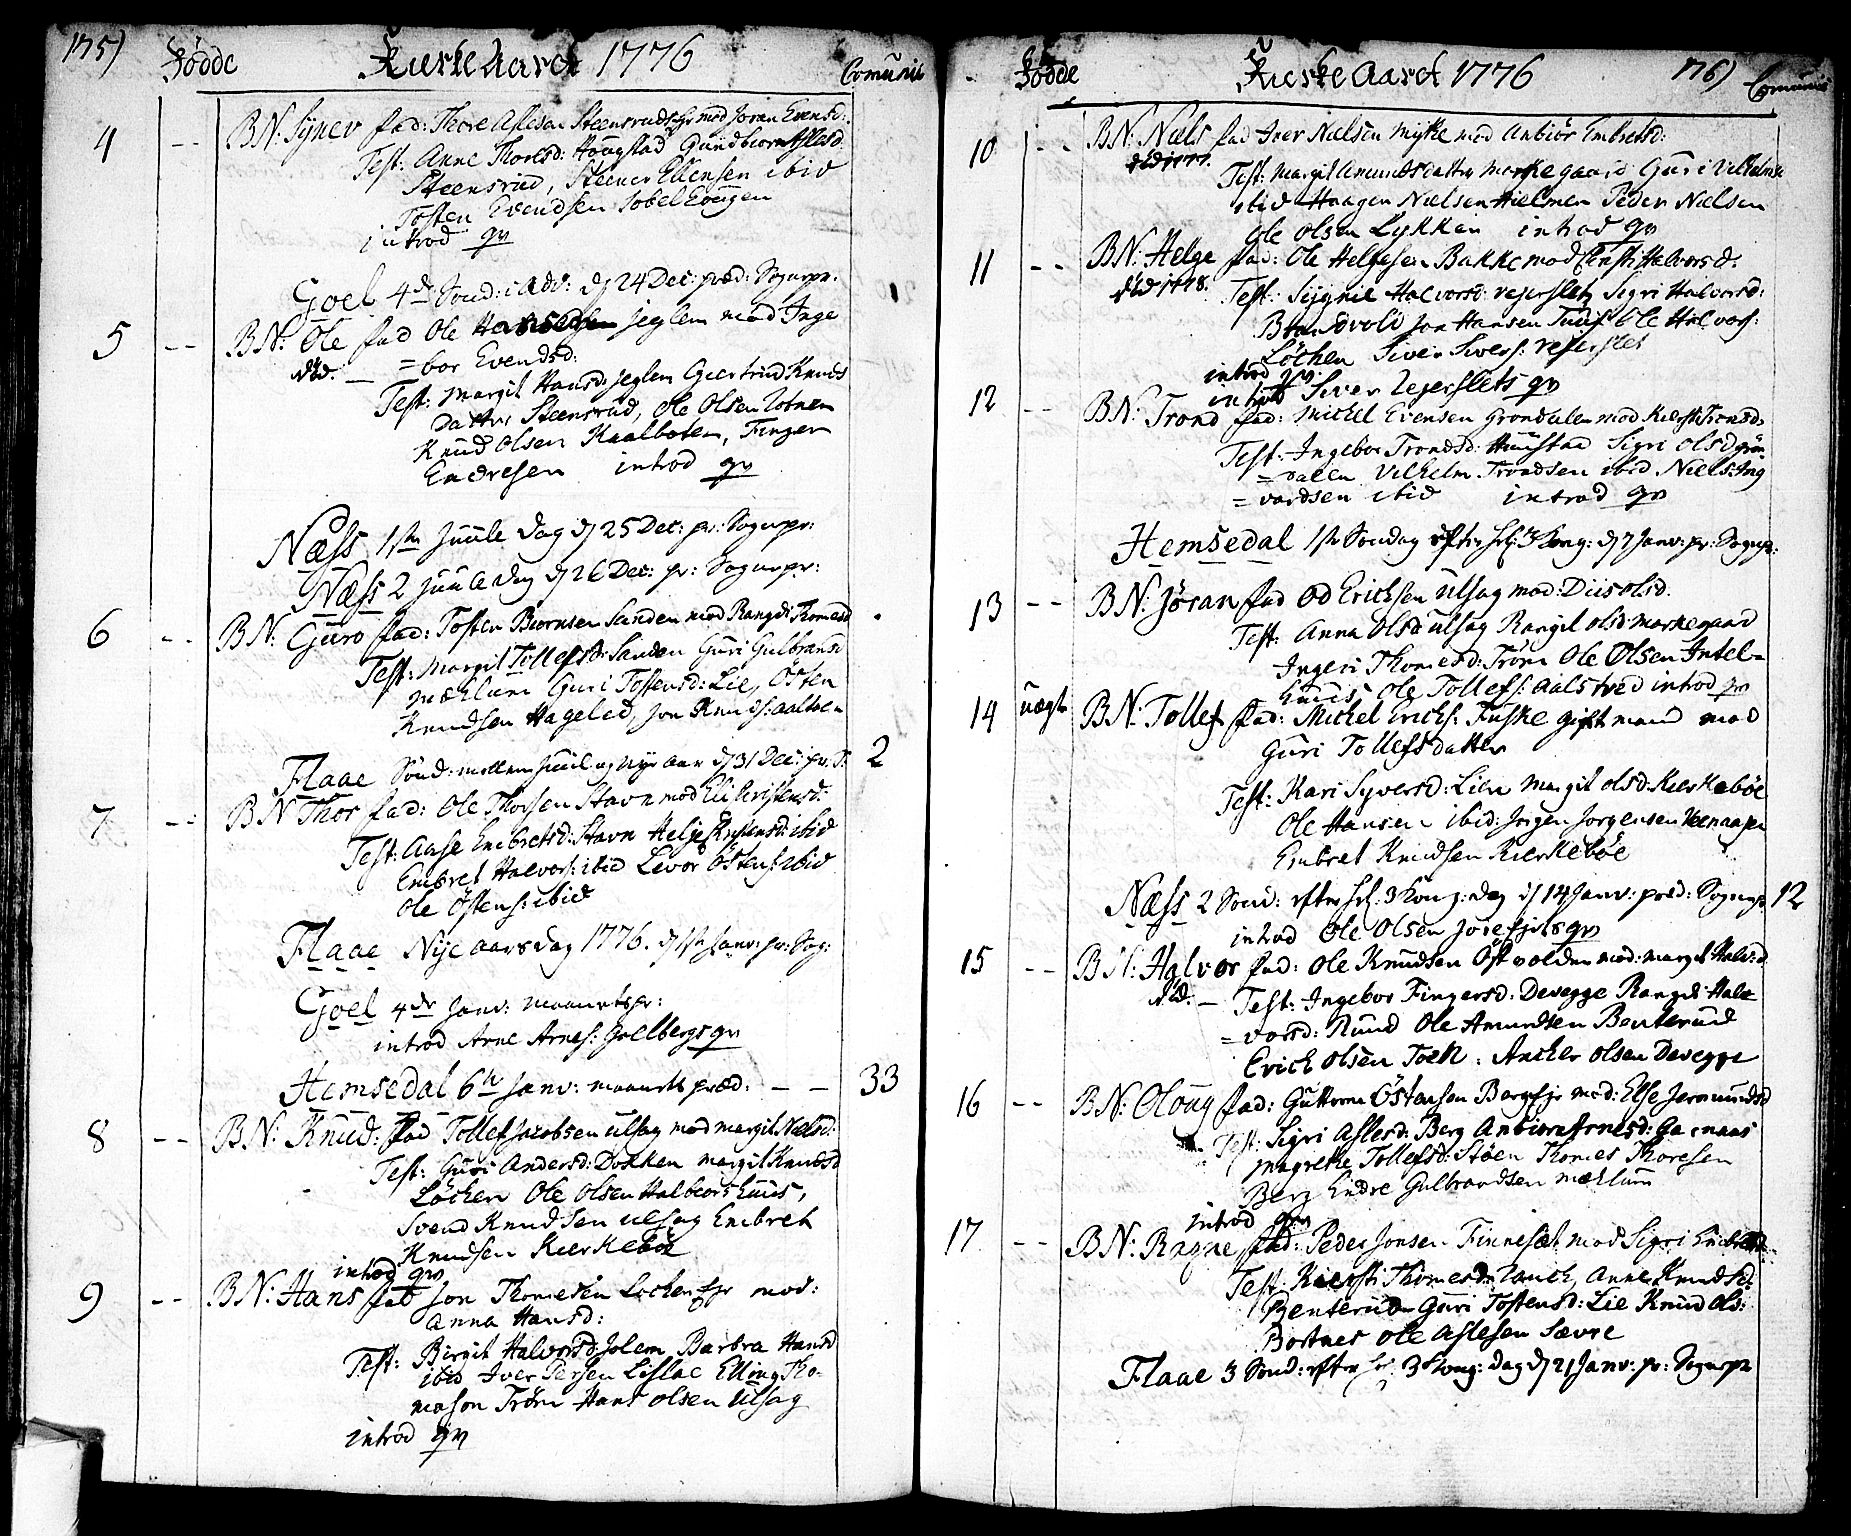 175)
Födde Kirke Aaret 1776 Comunic
4 -- BN: Syner fad: Thore Aslesen Steensrud mod Joran Evensd:
Test: Anne Thoresd: Haagstad Gundbiorn Aslesd
Steensrud, Steener Ellensen ibid
Tosten Evendsen
introd qv
Goel 4de Sönd: i Adv: d 24 Dec: præd: Sognepr.
5 -- BN: Ole fad Ole Jeglem mod Inge
död. — = bor Evendsd:
Test: Margit Hansd: Jeglem Giertrud Knuds
Datter Steensrud, Ole Olsen
Knud Olsen Kaalboten, Finger
Endresen introd qv
Næss 1ste Juule Dag d 25 Dec: pr: Sognepr:
Næss 2 Juule Dag d 26 Dec: pr: Sognepr:
6 -- BN: Guro fad: Tosten Biörnsen Sanden mod Rangdi Thomesd
Test: Margit Tollefsd: Sanden Guri Gulbrandsd
Mæhlum Guri Tostensd: Lie, Östen
Knudsen Hageled, Jon Knuds:
Flaae Sönd: mellem Juul og Nyt aar d 31 Dec: pr: S: 2
7 -- BN Thor fad: Ole Thorsen Stavn mod Eli Cristensd:
Test: Aase Embretsd: Stavn Helje ibid
Embret Halvors: ibid Levor Östens: ibid
Ole Östens: ibid
Flaae Nije aarsdag 1776. d 1ste Janv: pr: Sog:
Goel 4de Janv: maanetspr:
introd Arne Arnes: Golbergs qv
Hemsedal 6te Janv: maaneds præd: — — 33
8 -- BN: Knud: fad Tollef Jacobsen Ulsag mod Margit Nielsd:
Test: Guri Andersd: Dokken Margit Knudsd
Löcken Ole Olsen
Svend Knudsen Ulsag Embret
Knudsen Kierkeböe
introd qv
9 -- BN: Hans fad Jon Thomesen Locken mod:
Anna Hansd:
Test: Birgit Halvorsd: Barbra Hansd
ibid Iver Persen Elling Tho-
mason Tröm Hans Olsen Ulsag
introd qv
Födde Kirke Aaret 1776 176) Comunic
10 -- BN: Niels fad Iver Nielsen Myke mod Anbiör Embretsd:
död 1777.
Test: Margit Amundsdatter Markegaard Guri Vilhelmsd
ibid Haagen Nielsen Hielmen Peder Nielsen
Ole Olsen Lykken introd qv
11 -- BN: Helge fad: Ole Helgesen Bakke mod Halvorsd:
död 1778.
Test: Sygnie Halvorsd: Sigri Halvorsd:
Brandvold Jon Hansen Tuuf Ole Halvors:
Löcken Siver Sivers:
introd qv
introd Siver qv
12 -- BN: Trond fad: Michel Evensen Gröndalen mod Kiersti Trondsd:
Test: Ingebor Trondsd: Huustad Sigri Olsd Grön
= dalen Vilhelm Trondsen ibid Niels Ing
= vardsen ibid introd qv
Hemsedal 1ste Söndag efter hel: 3 Kong: d 7 Janv: pr: Sognepr:
13 -- BN: Jöran fad Od Erichsen Ulsag mod: Olsd.
Test: Anna Olsd Ulsag Rangil Olsd Markegaard
Ingeri Thomesd: Tröm Ole Olsen Intel-
huus Ole Tollefs: Aalstved introd qv
14 uægte BN: Tollef fad: Michel Erichs: Fuske gift mand mod
Guri Tollefsdatter
Test: Kari Syversd: Margit Olsd: Kierkeböe
Ole Hansen ibid: Jörgen Jörgensen
Embret Knudsen Kierkeböe
Næss 2 Sönd: efter hel: 3 Kong: dag d 14 Janv: præd: Sognepr 12
introd Ole Olsen qv
15 -- BN: Halvor fad: Ole Knudsen mod: Margit Halvd
död. — Test: Ingebor Fingersd: Devegge Rangdi Hal
= vorsd: Ruud Ole Amundsen Benterud
Erich Olsen Toen: Ancher Olsen Devegge
16 -- BN: Oloug fad: Guttorm Östensen Berg mod: Else Jermundsd
Test: Sigri Aslesd: Berg Anbiör Arnesd:
Magrethe Tollefsd: Stöen Thomes Thoresen
Berg Endre Gulbrandsen Mæhlum
introd qv
17 -- BN: Ragne fad: Peder Jonsen Finneset mod Sigri Embretsd:
Test: Kiersti Thomesd: Anne Knudsd:
Benterud Guri Tostensd: Lie Knud Ols:
Bortnes Ole Aslesen Sævre
Flaae 3 Sönd: efter hel: 3 Kong: dag d 21 Janv: pr: Sognepr